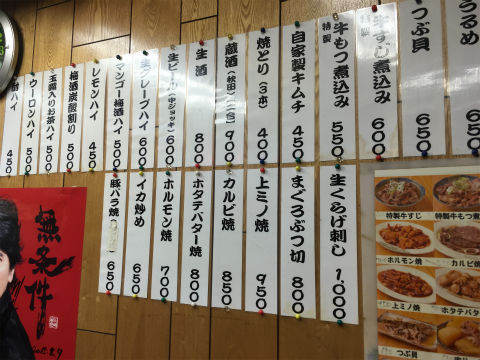 うるめ
650
つぶ貝
650
特製
牛すじ煮込み
600
特製
牛もつ煮込み
550
自家製キムチ
450
焼とり(3本)
400
蔵酒(秋田 二合)
900
生酒
800
生ビール(中ジョッキ)
600
生グレープハイ
600
マンゴー梅酒ハイ
500
レモンハイ
450
梅酒炭酸割り
500
玉露入りお茶ハイ
500
ウーロンハイ
500
酎ハイ
450
生くらげ刺し
1,000
まぐろぶつ切
800
上ミノ焼
950
カルビ焼
850
ホタテバター焼
800
ホルモン焼
700
イカ炒め
650
豚バラ焼
650
無条件
特製牛すじ
特製牛もつ煮
ホルモン焼
カルビ焼
上ミノ焼
ホタテバタ
つぶ貝